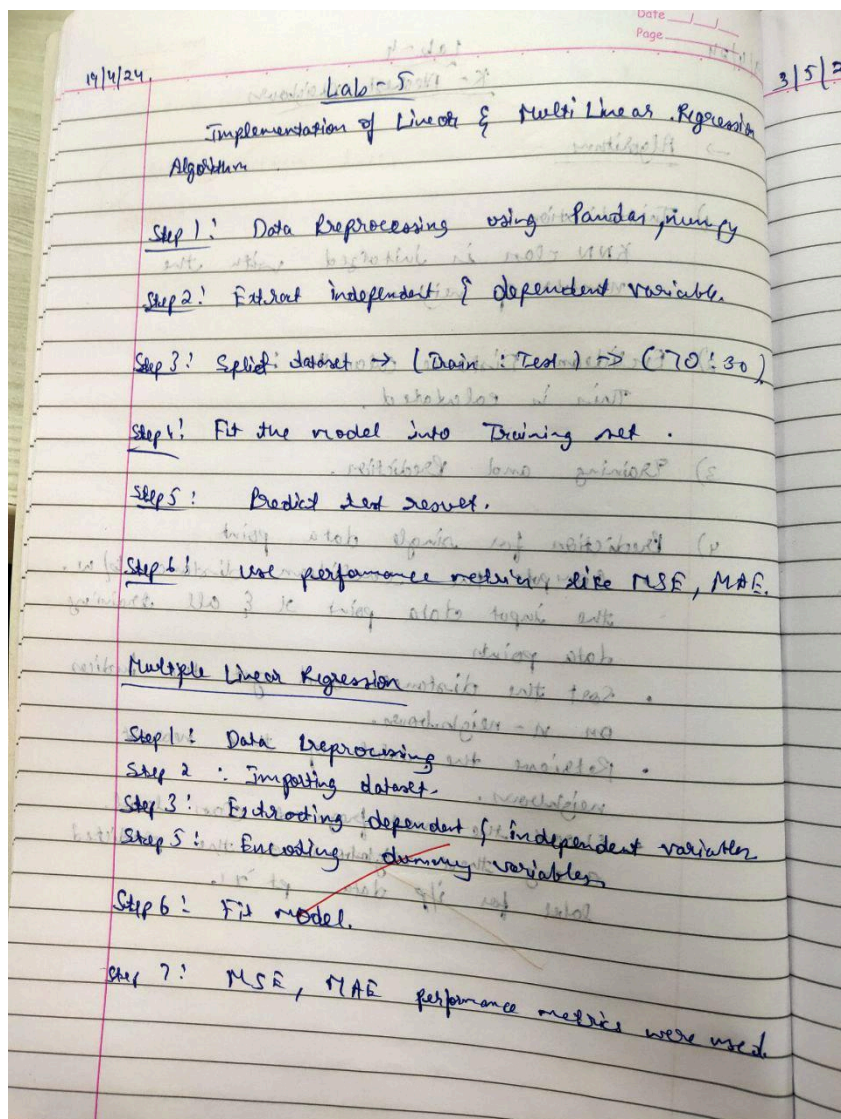 Date
Page
19/4/24
3/5/2
Lab - 5
Implementation of Linear & Multi Linear Regression
Algorithm
Step 1: Data Preprocessing using Pandas, numpy
Step 2: Extract independent & dependent variable.
Step 3: Split dataset → (Train : Test) → (70:30)
Step 4: Fit the model into Training set.
Step 5: Predict test result.
Step 6: use performance metrics like MSE, MAE.
Multiple Linear Regression
Step 1: Data Preprocessing
Step 2: Importing dataset.
Step 3: Extracting dependent & independent variables
Step 5: Encoding dummy variables
Step 6: Fit model.
Step 7: MSE, MAE performance metrics were used.